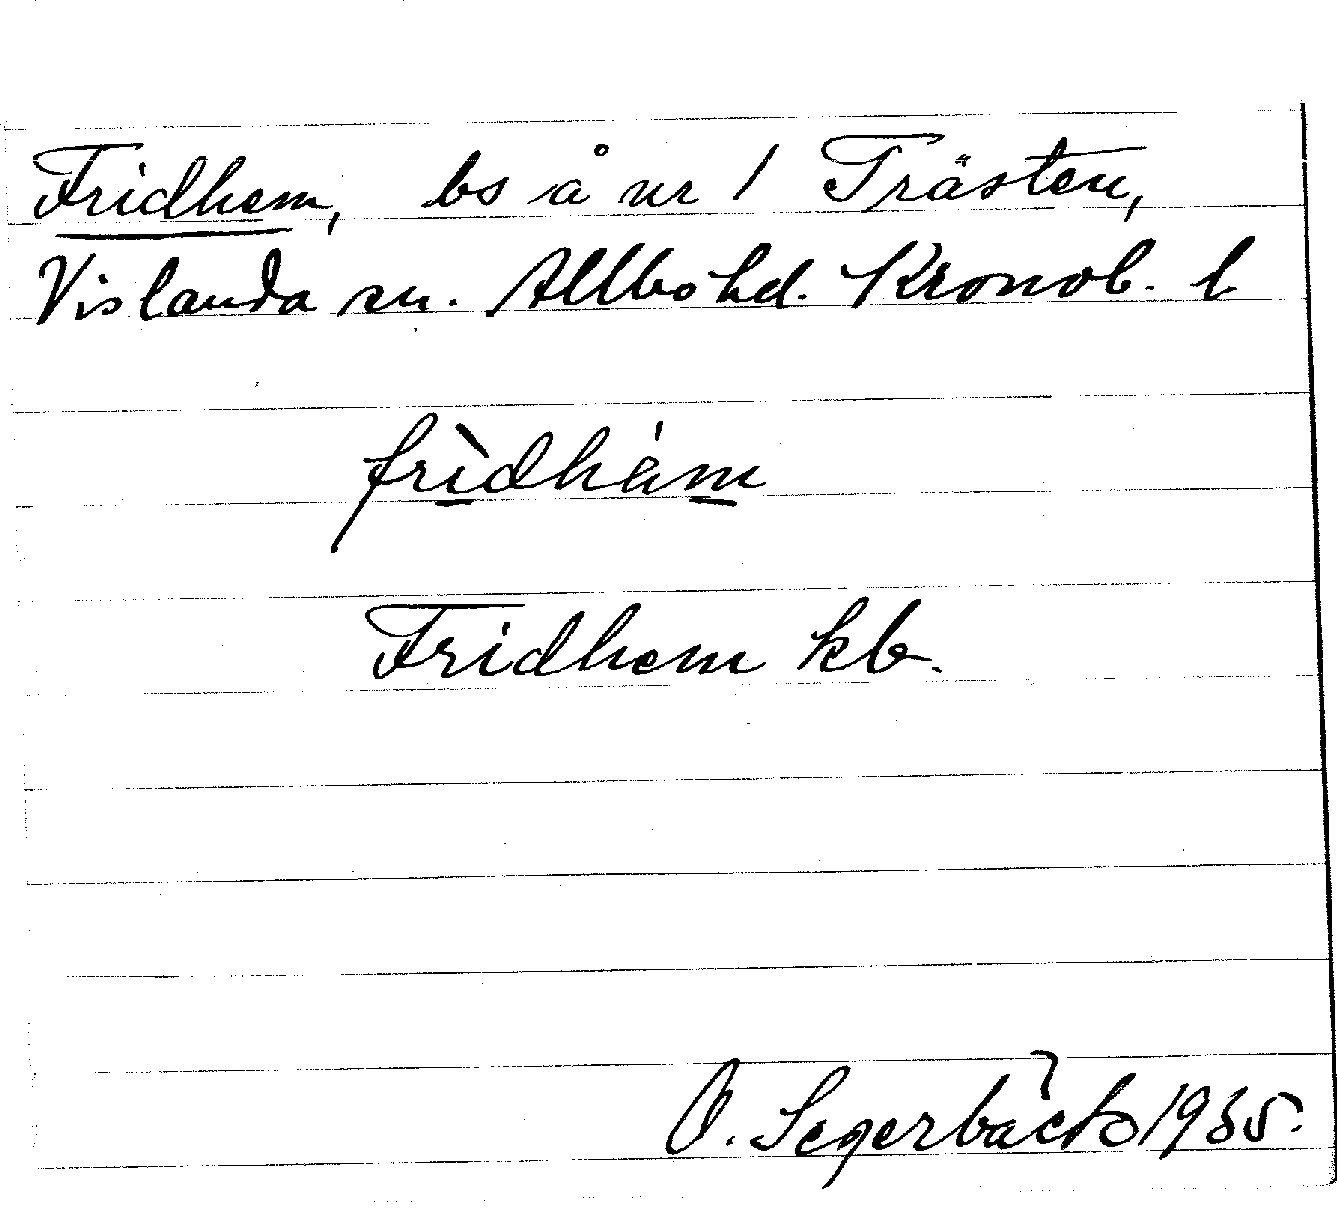 Fridhem, bs å nr 1 Trästen,
Vislanda sn. Allbo hd. Kronob. l
fridhäm
Fridhem kb.
O. Segerbäck 1935.